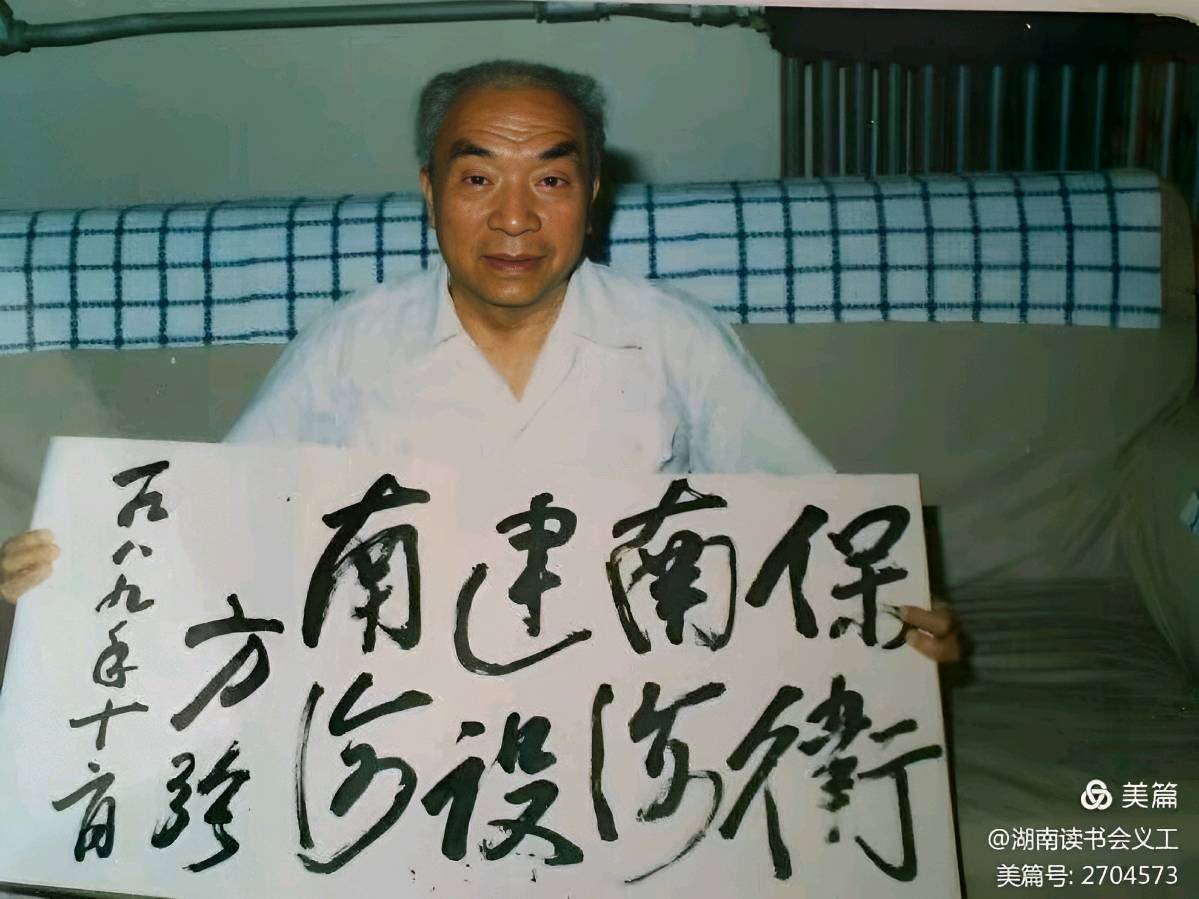 保衛
南海
建设
南海
方強
一九八九年十月
美篇
@湖南读书会义工
美篇号: 2704573